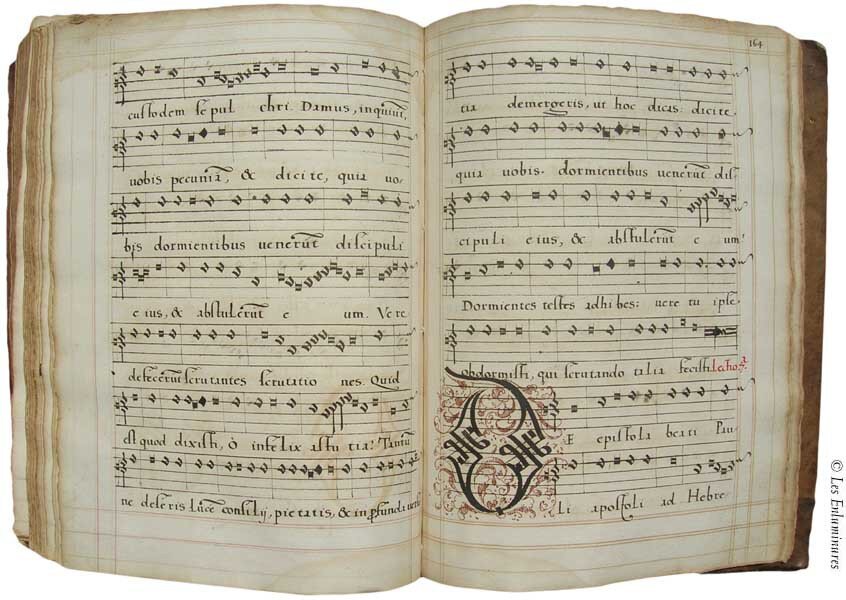 custodem sepul chri. Damus, inquiũt,
uobis pecuniã, & dicite, quia uo-
bis dormientibus uenerũt discipuli
eius, & abstulerũt e um. Vere
defecerũt scrutantes scrutatio nes. Quid
est quod dixisti, ò infelix astu tia? Tantũ
ne deseris lucẽ consilij, pietatis, & in profunda uersu
164
tia demergeris, ut hoc dicas: dicite
quia uobis dormientibus uenerũt dis
cipuli eius, & abstulerũt e um?
Dormientes testes adhibes: uere tu ipse
obdormisti, qui scrutando talia fecisti. Lectio
DE epistola beati Pau
li apostoli ad Hebre
© Les Enluminures